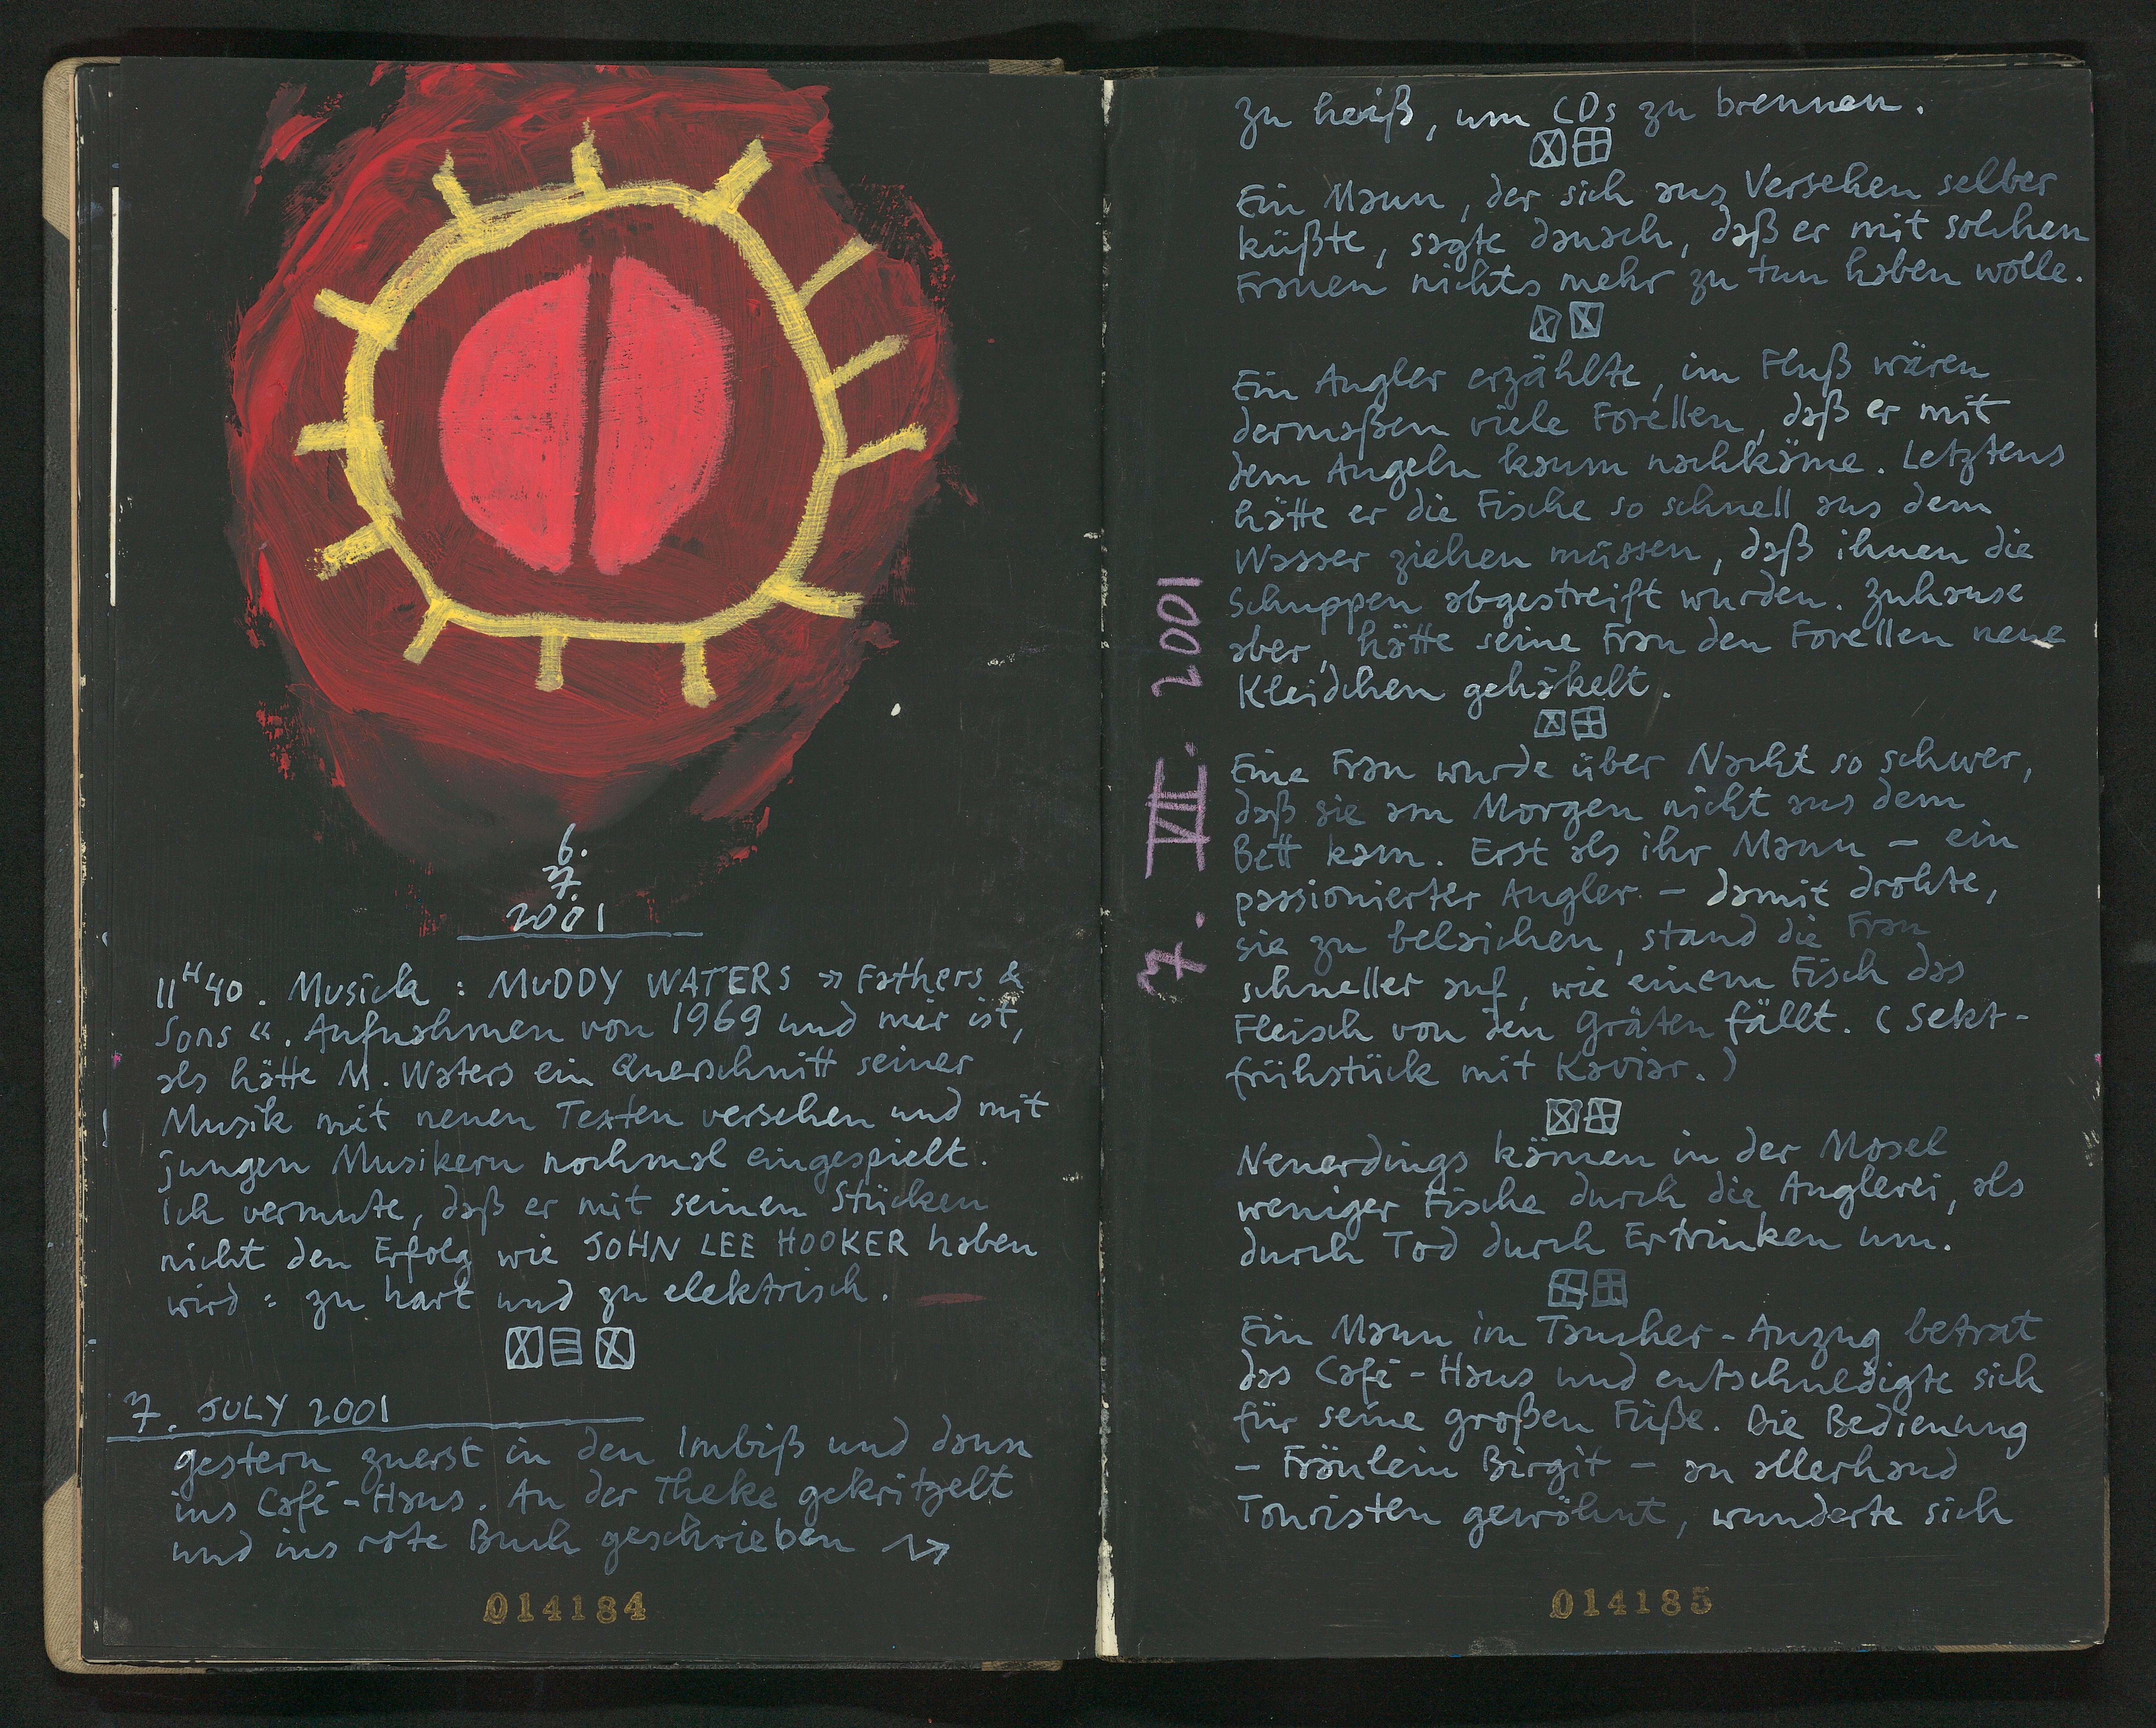 6.
7.
2001
11H40. Musick : MUDDY WATERS »Fathers &
Sons«. Aufnahmen von 1969 und mir ist,
als hätte M. Waters ein Querschnitt seiner
Musik mit neuen Texten versehen und mit
jungen Musikern nochmal eingespielt.
Ich vermute, daß er mit seinen Stücken
nicht den Erfolg wie JOHN LEE HOOKER haben
wird : zu hart und zu elektrisch.
7. JULY 2001
gestern zuerst in den Imbiß und dann
ins Café-Haus. An der Theke gekritzelt
und ins rote Buch geschrieben
014184
7. VII. 2001
Zu heiß, um CDs zu brennen.
Ein Mann, der sich aus Versehen selber
küßte, sagte danach, daß er mit solchen
Frauen nichts mehr zu tun haben wolle.
Ein Angler erzählte, im Fluß wären
dermaßen viele Forellen, daß er mit
dem Angeln kaum nachkäme. Letztens
hätte er die Fische so schnell aus dem
Wasser ziehen müssen, daß ihnen die
Schuppen abgestreift wurden. Zuhause
aber, hätte seine Frau den Forellen neue
Kleidchen gehäkelt.
Eine Frau wurde über Nacht so schwer,
daß sie am Morgen nicht aus dem
Bett kam. Erst als ihr Mann – ein
passionierter Angler – damit drohte,
sie zu belaichen, stand die Frau
schneller auf, wie einem Fisch das
Fleisch von den Gräten fällt. (Sekt-
frühstück mit Kaviar.)
Neuerdings kämen in der Mosel
weniger Fische durch die Anglerei, als
durch Tod durch Ertrinken um.
Ein Mann im Taucher-Anzug betrat
das Café-Haus und entschuldigte sich
für seine großen Füße. Die Bedienung
– Fräulein Birgit – an allerhand
Touristen gewöhnt, wunderte sich
014185